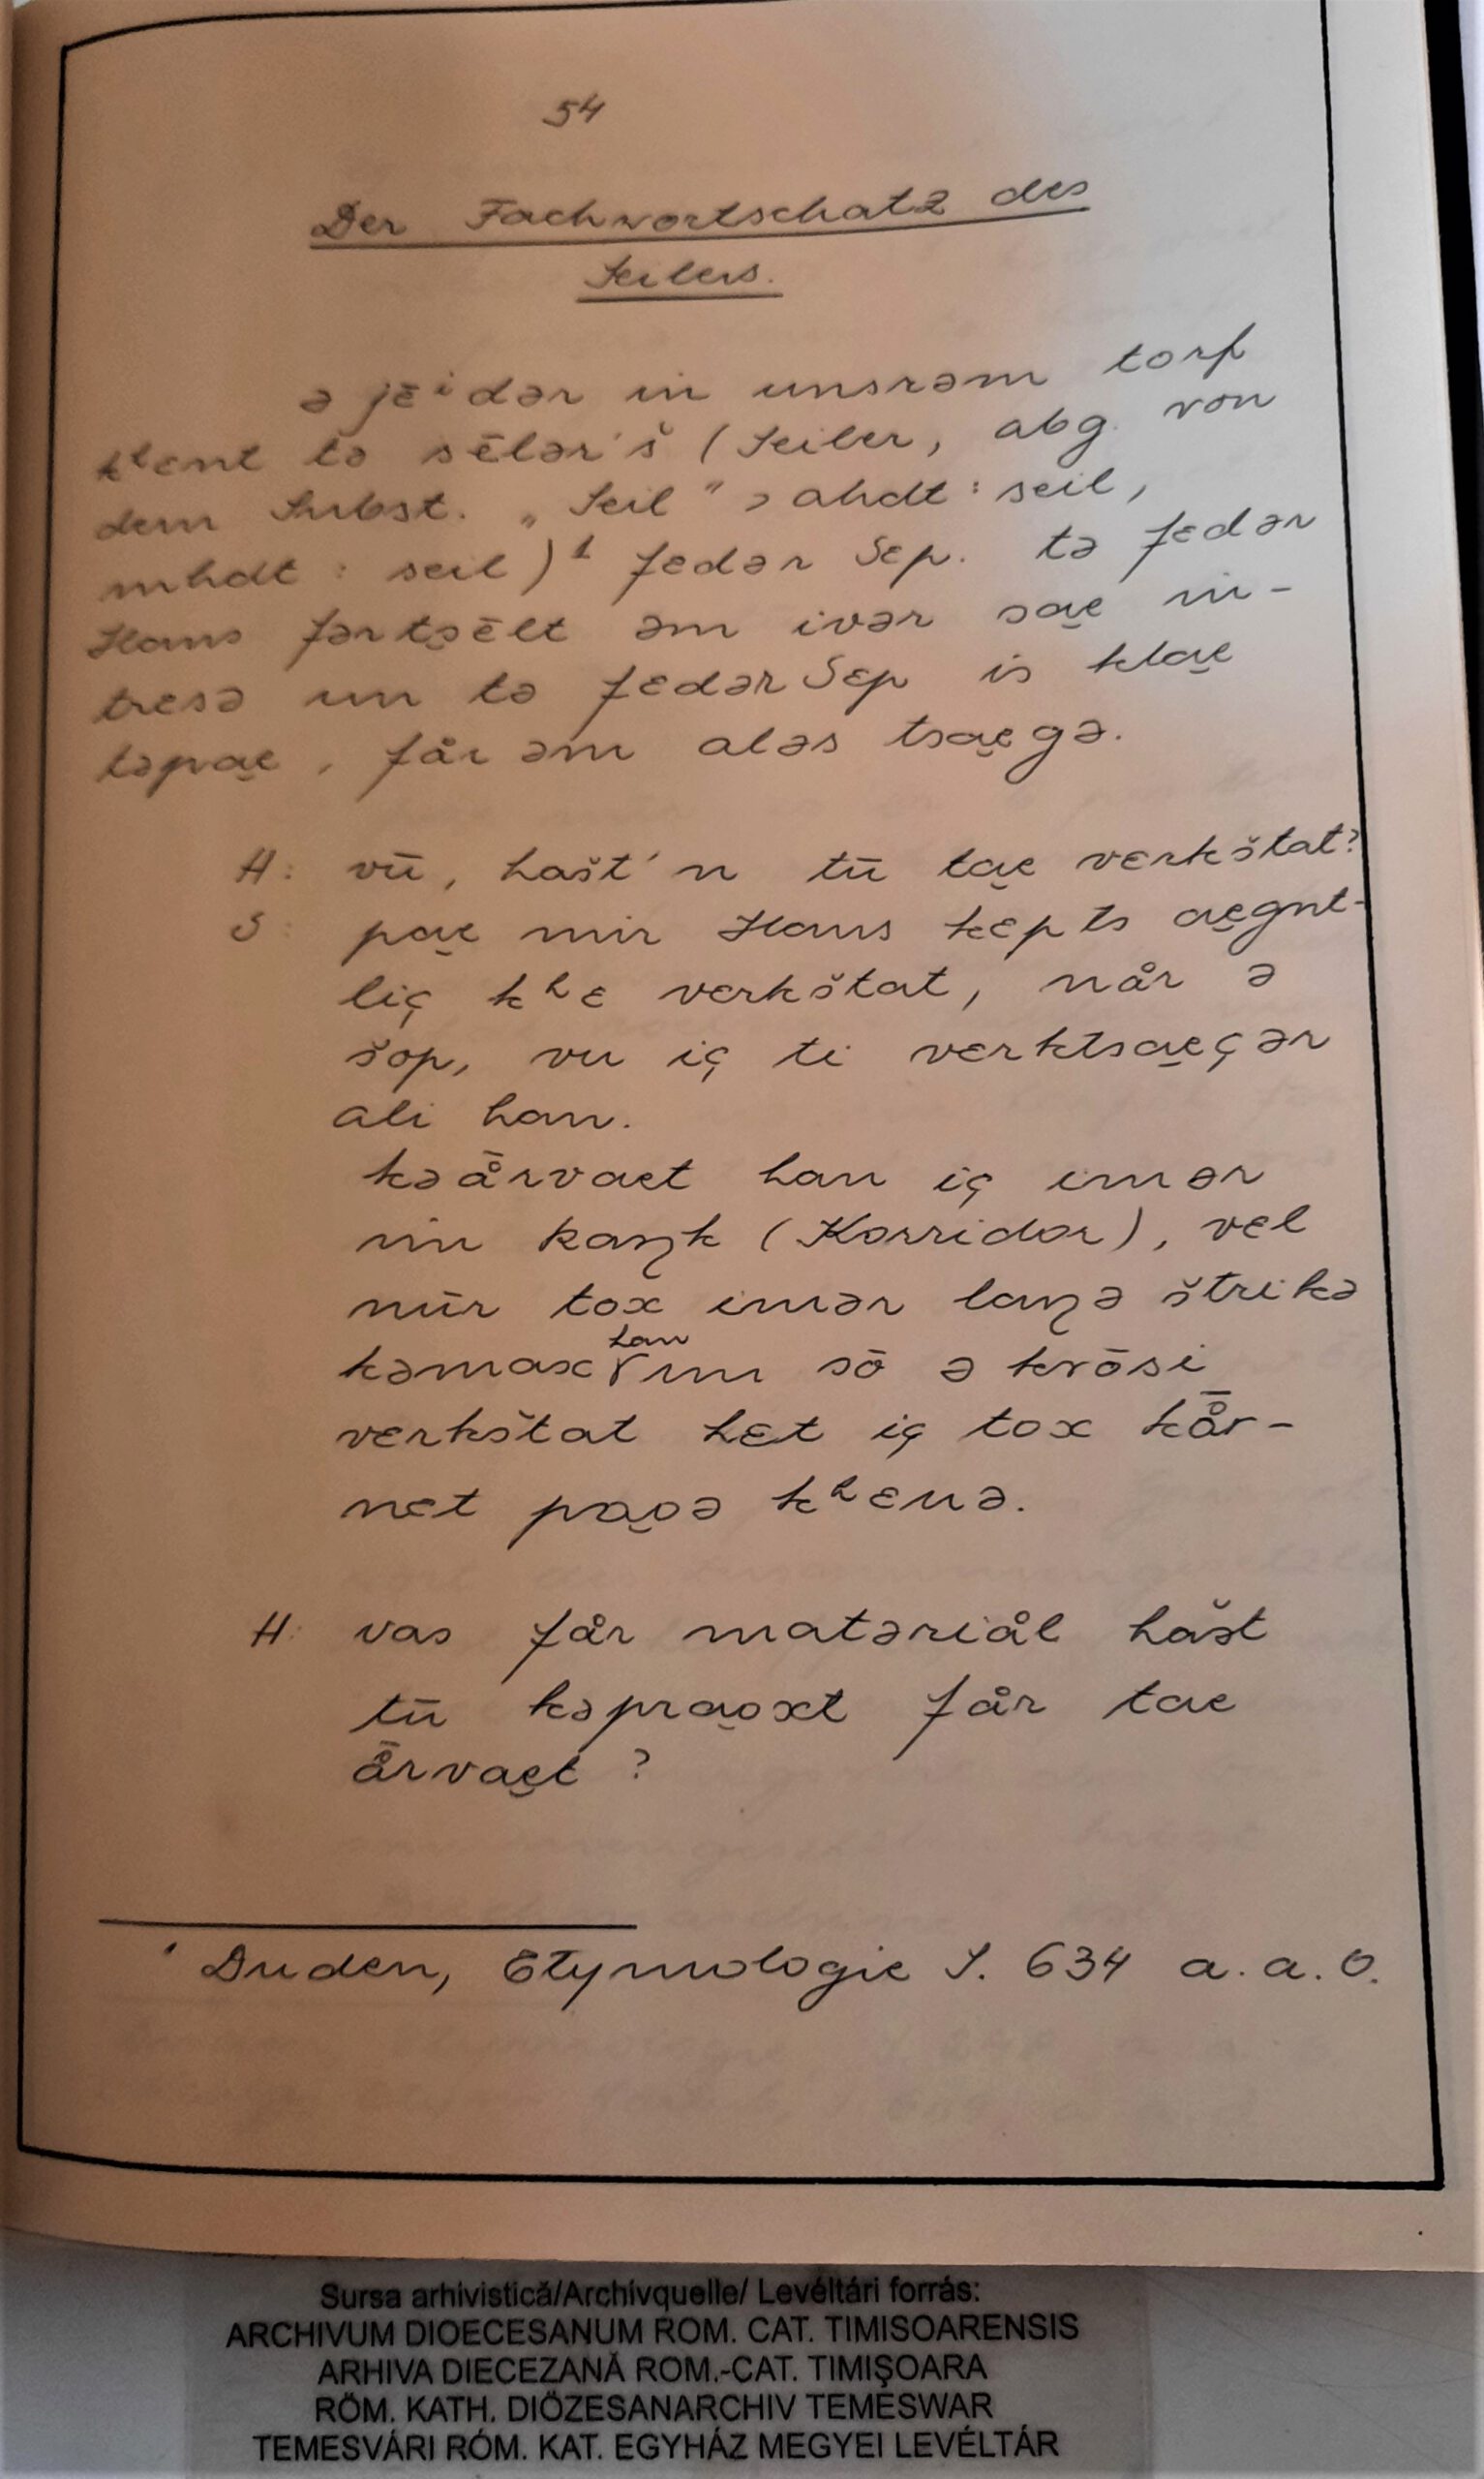 54
Der Fachwortschatz des
Seilers.
ə jēⁱdər in unsrəm torf
kʰent tə sēlər's̆ (Seiler, abg. von
dem Subst. „Seil" > ahdt: seil,
mhdt: seil)¹ fedər Sep. tə fedər
Hans fərtsēlt əm ivər sae̯ in-
tresə un tə fedər Sep is klae̯
təpae̯, får əm aləs tsae̯gə.
H: vū, hašt'n tū tae̯ verkštat?
S: pae̯ mir Hans kɛpts ae̯gnt-
liç kʰɛ verkštat, når ə
šop, vu iç ti verktsae̯çər
ali han.
kəå̄rvaet han iç imər
im kaŋk (Korridor), vɛl
mūr tox imər laŋə štrikə
kəmax han un sō ə krōsi
vɛrkštat hɛt iç tox kå̄r-
nɛt pao̯ə kʰɛnə.
H: vas får matəriål hašt
tū kəprao̯xt får tae
å̄rvae̯t?
¹ Duden, Etymologie S. 634 a.a.O.
Sursa arhivistică/Archivquelle/ Levéltári forrás:
ARCHIVUM DIOECESANUM ROM. CAT. TIMISOARENSIS
ARHIVA DIECEZANĂ ROM.-CAT. TIMIŞOARA
RÖM. KATH. DIÖZESANARCHIV TEMESWAR
TEMESVÁRI RÓM. KAT. EGYHÁZ MEGYEI LEVÉLTÁR